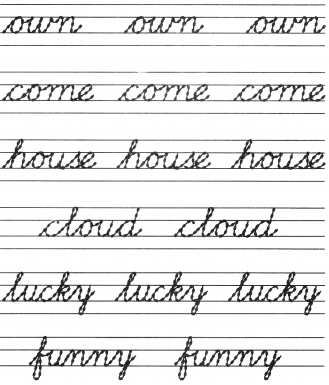 own own own
come come come
house house house
cloud cloud
lucky lucky lucky
funny funny